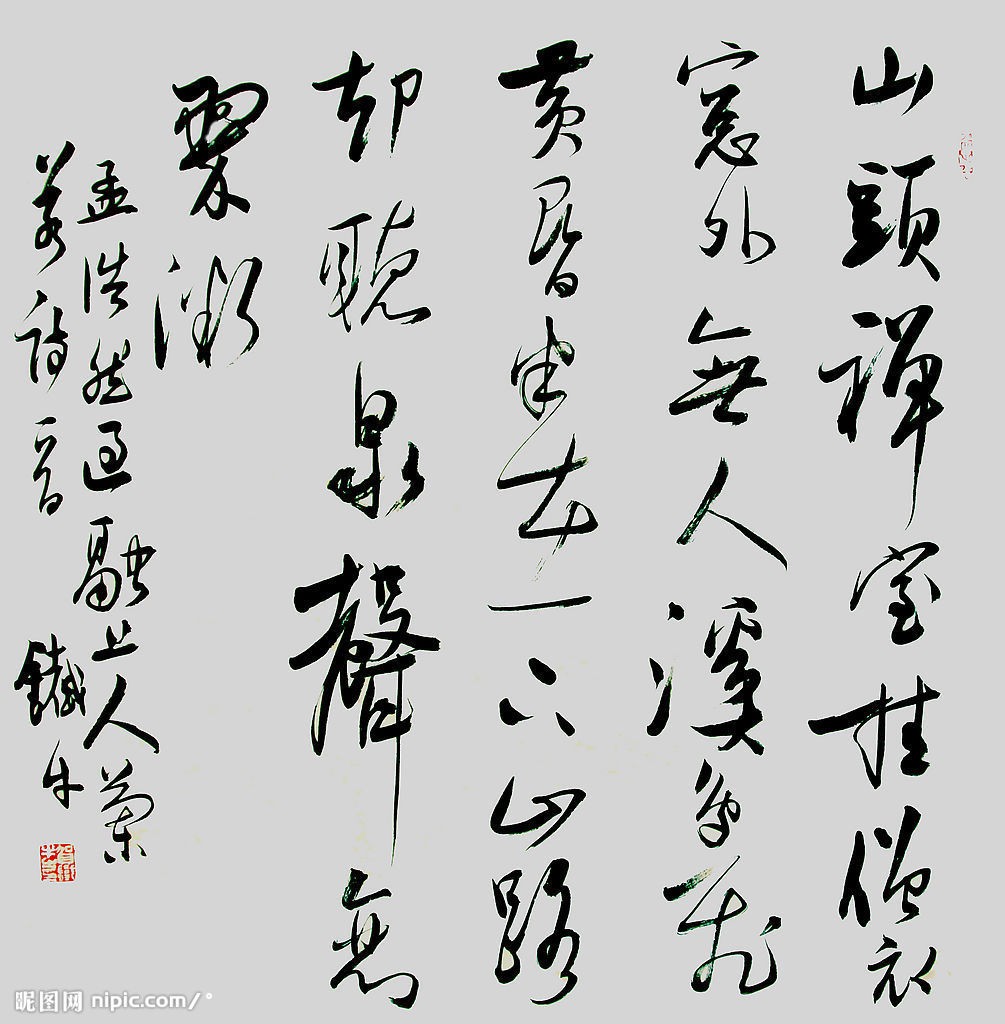 山頭禪室挂僧衣
窓外無人溪鳥飛
黄昏半在下山路
却聽泉聲戀
翠微
孟浩然過融上人蘭
若詩一首 鐵牛
昵图网 nipic.com/